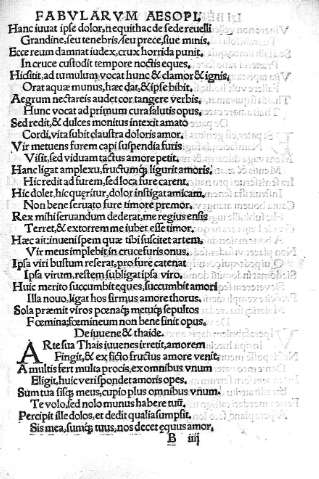 FABVLARVM AESOPI,
Hanc iuuat ipse dolor, nequit hac de sede reuelli
Grandine, seu tenebris, seu prece, siue minis.
Ecce reum damnat iudex, crux horrida punit,
In cruce custodit tempore noctis eques.
Hic sitit, ad tumulum vocat hunc & clamor & ignis,
Orat aquæ munus, hæc dat, & ipse bibit.
Aegrum nectareis audet cor tangere verbis,
Hunc vocat ad primum cura salutis opus.
Sed redit, & dulces monitus intexit amato
Cordi, vita subit claustra doloris amor.
Vir metuens furem capi suspendia furis
Visit, sed viduam tactus amore petit.
Hanc ligat amplexu, fructumq; ligurit amoris,
Hic redit ad furem, sed loca fure carent.
Hic dolet, hic queritur, dolor instigat amicam,
Non bene seruato fure timore premor.
Rex mihi seruandum dederat, me regius ensis
Terret, & extorrem me iubet esse timor.
Hæc ait: inueni spem quæ tibi suscitet artem,
Vir meus implebit in cruce furis onus.
Ipsa viri bustum reserat, pro fure catenat
Ipsa virum, restem subligat ipsa viro.
Huic merito succumbit eques, succumbit amori
Illa nouo, ligat hos firmus amore thorus.
Sola premit viros pœnaq; metuq; sepultos
Fœmina, fœmineum non bene finit opus.
De iuuene & thaide.
Arte sua Thais iuuenes irretit, amorem
Fingit, & ex ficto fructus amore venit.
A multis fert multa procis, ex omnibus vnum
Eligit, huic veri spondet amoris opes.
Sum tua sisq; meus, cupio plus omnibus vnum
Te volo, sed nolo munus habere tuū.
Percipit ille dolos, et dedit qualia sumpsit.
Sis mea, sumq; tuus, nos decet equus amor.
B iiij